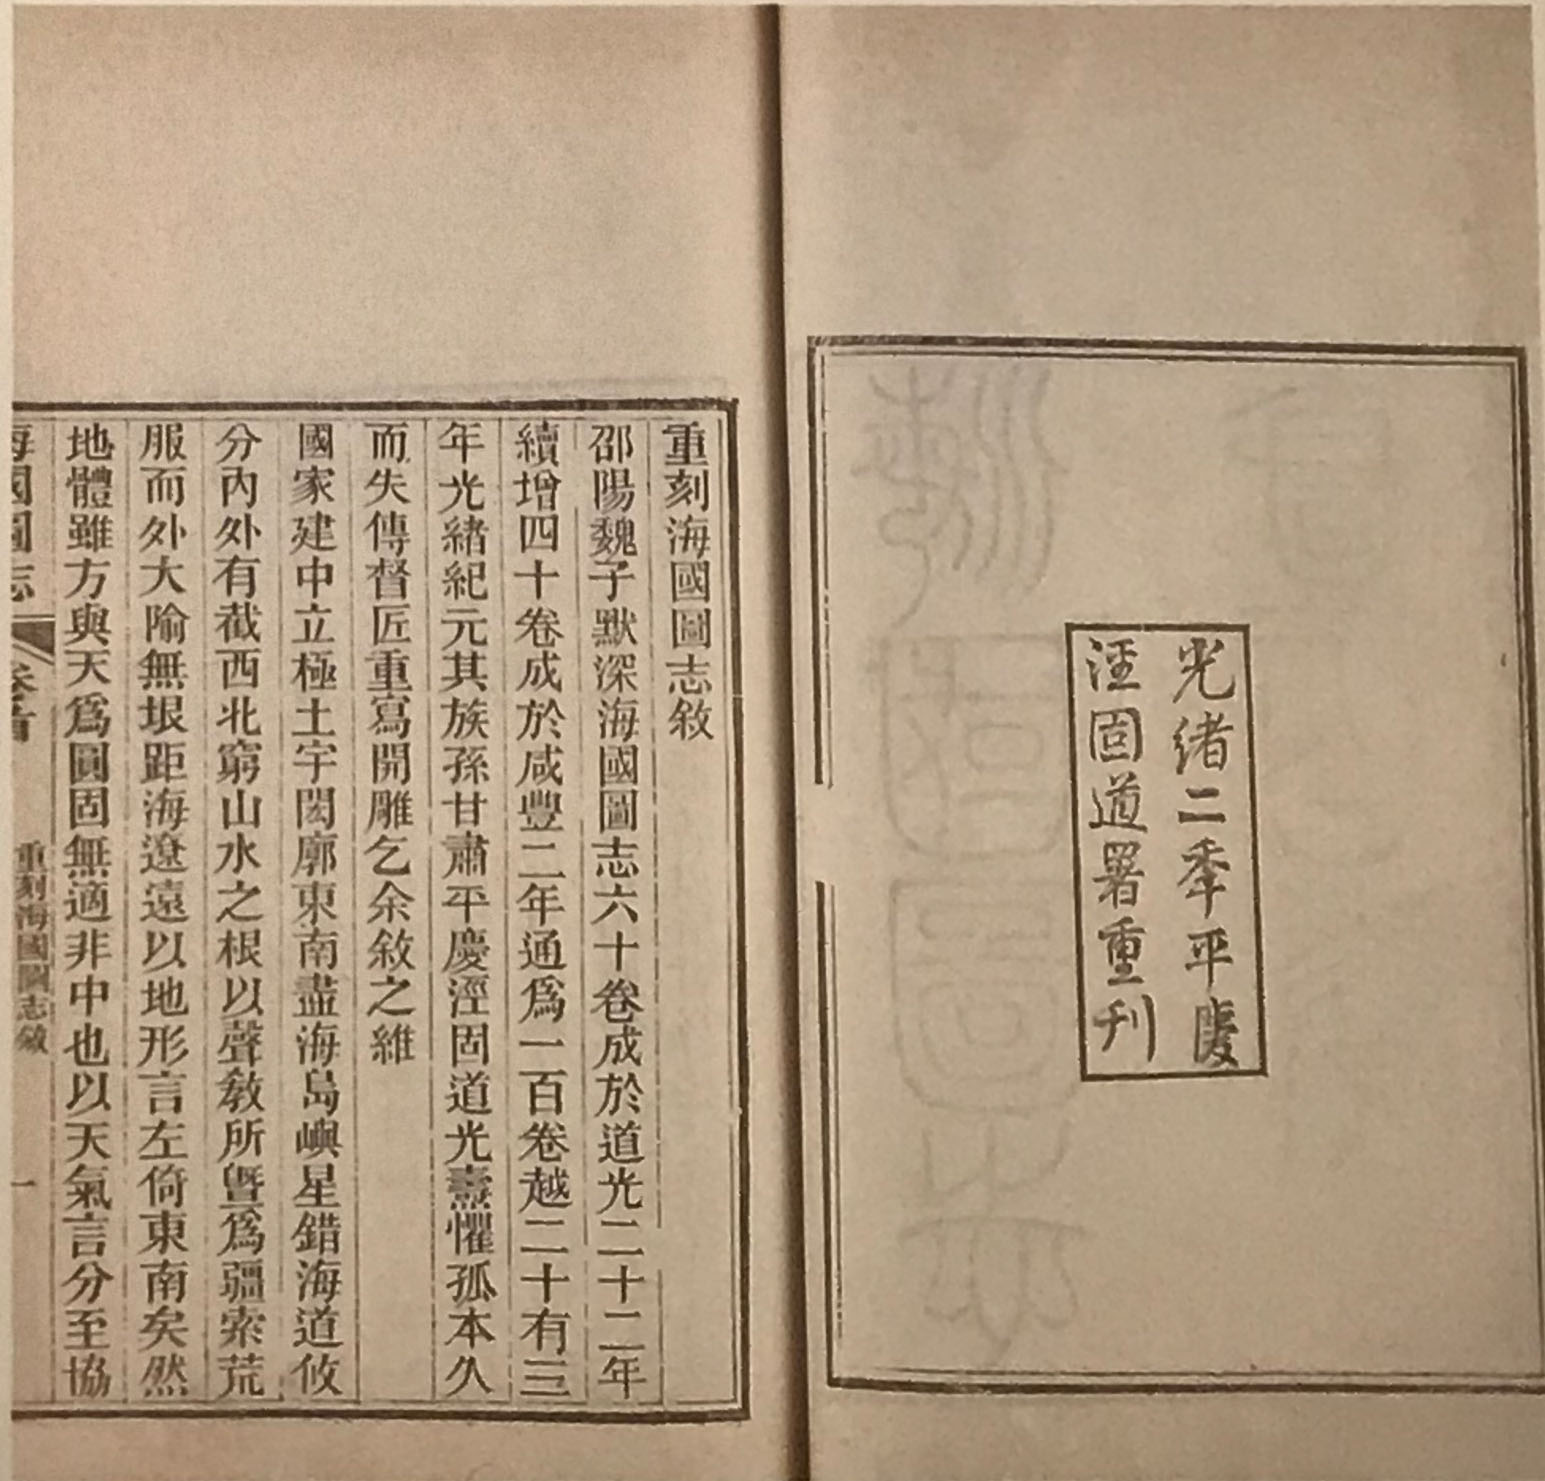 光緒二年平慶
涇固道署重刊
重刻海國圖志敘
邵陽魏子默深海國圖志六十卷成於道光二十二年
續增四十卷成於咸豐二年通爲一百卷越二十有三
年光緒紀元其族孫甘肅平慶涇固道光燾懼孤本久
而失傳督匠重寫開雕乞余敘之維
國家建中立極土宇閎廓東南盡海島嶼星錯海道攸
分內外有截西北窮山水之根以聲敎所曁爲疆索荒
服而外大隃無垠距海遼遠以地形言左倚東南矣然
地體雖方與天爲圓固無適非中也以天氣言分至協
海國圖志
卷首
重刻海國圖志敘
一